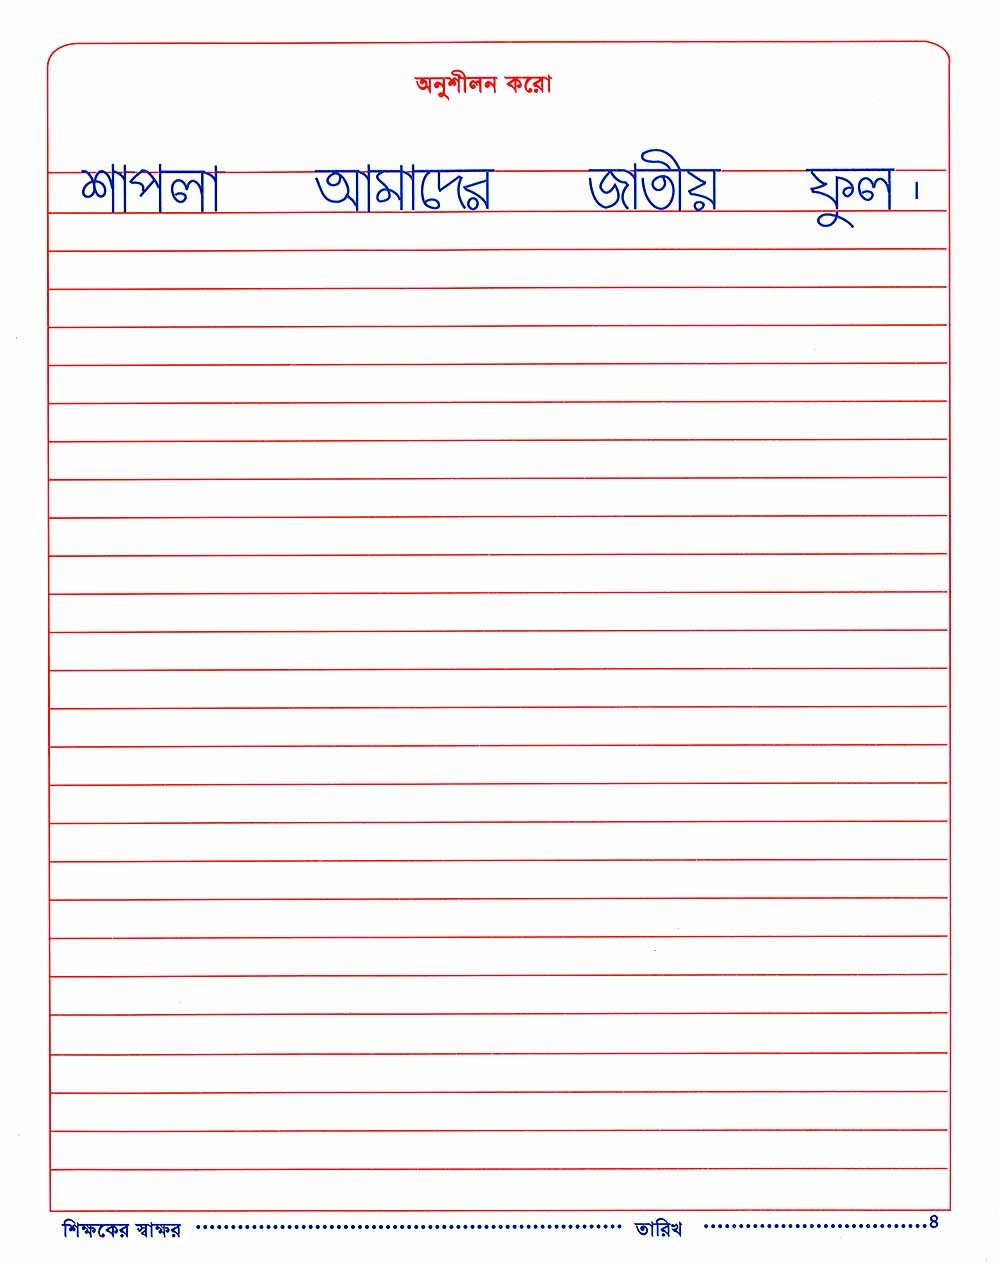 অনুশীলন করো
শাপলা আমাদের জাতীয় ফুল ।
শিক্ষকের স্বাক্ষর ........................................................ তারিখ .............................৪